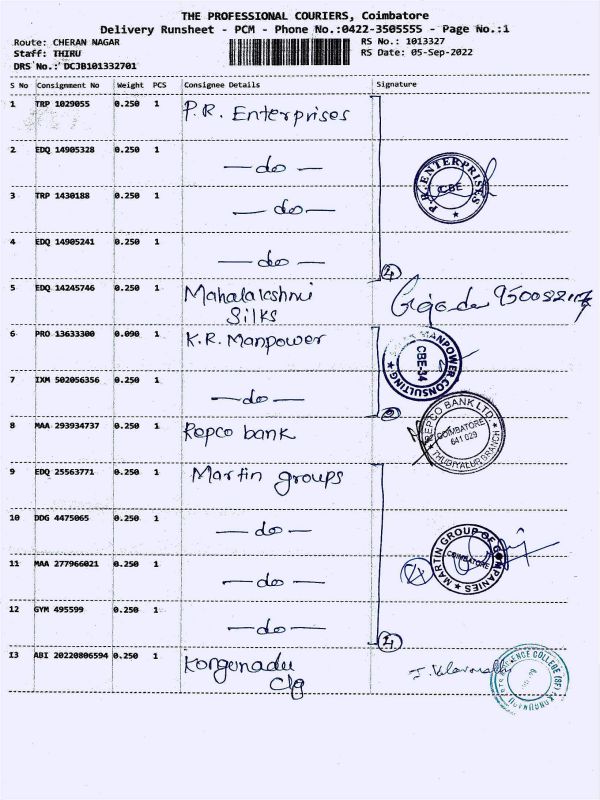 THE PROFESSIONAL COURIERS, Coimbatore
Delivery Runsheet - PCM - Phone No.:0422-3505555 - Page No.:1
Route: CHERAN NAGAR
Staff: THIRU
DRS No.: DCJB101332701
RS No.: 1013327
RS Date: 05-Sep-2022
S No Consignment No Weight PCS Consignee Details Signature
1 TRP 1029055 0.250 1 P.R. Enterprises
2 EDQ 14905328 0.250 1 —do—
3 TRP 1430188 0.250 1 —do—
P.R. ENTERPRISES
CBE
4 EDQ 14905241 0.250 1 —do— 4
5 EDQ 14245746 0.250 1 Mahalakshmi
Silks
6 PRO 13633300 0.090 1 K.R. Manpower
MANPOWER CONSULTING
CBE-34
7 IXM 502056356 0.250 1 —do—
8 MAA 293934737 0.250 1 Repco bank
REPCO BANK LTD.
COIMBATORE
641 029
THUDIYALUR BRANCH
9 EDQ 25563771 0.250 1 Martin groups
10 DDG 4475065 0.250 1 —do—
11 MAA 277966021 0.250 1 —do—
MARTIN GROUP OF COMPANIES
COIMBATORE
12 GYM 495599 0.250 1 —do— 4
13 ABI 20220806594 0.250 1 Kongunadu
Clg
SCIENCE COLLEGE